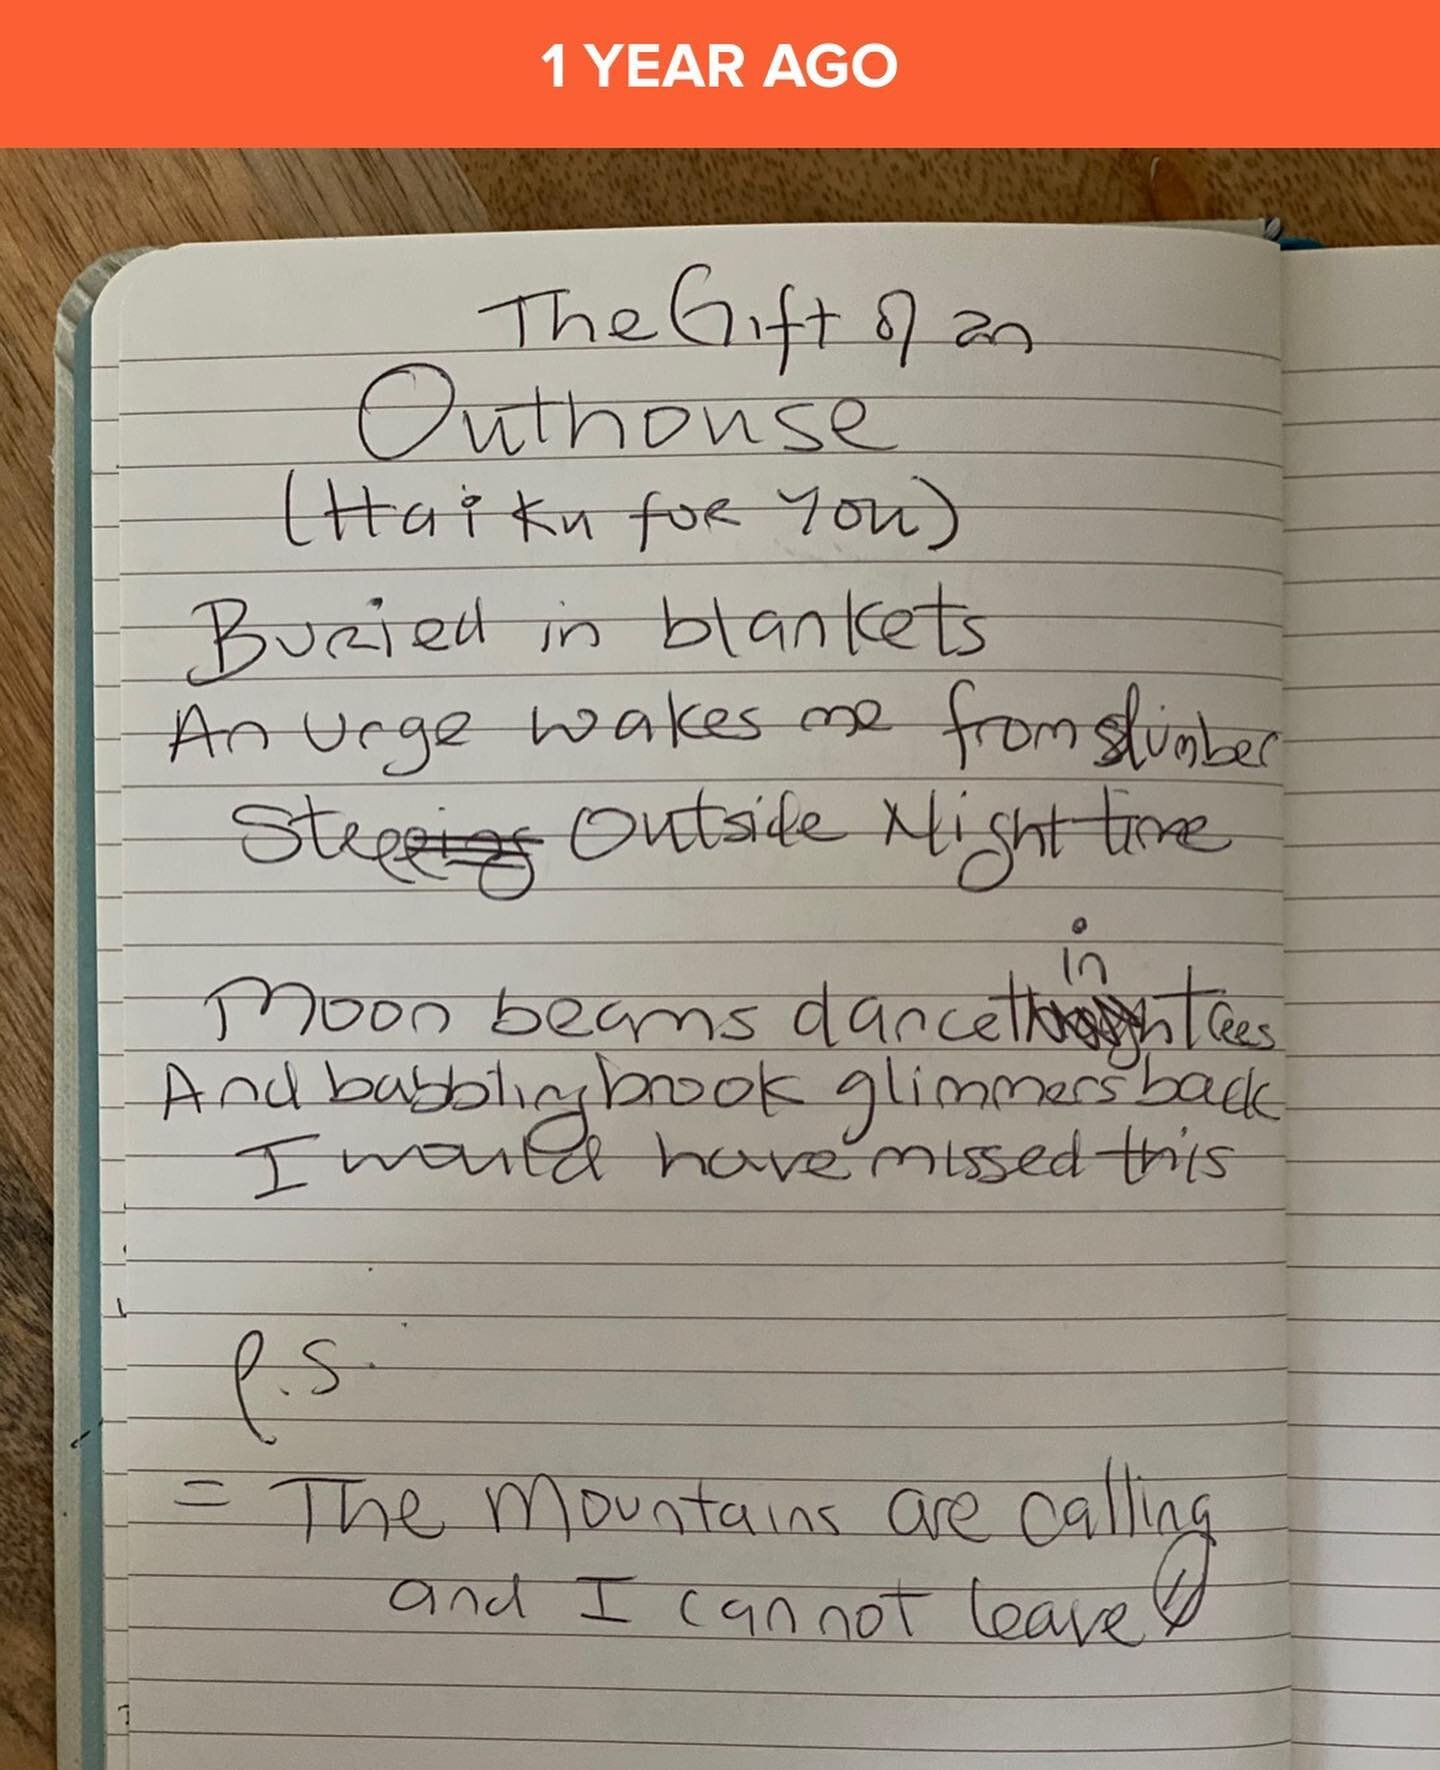 1 YEAR AGO
The Gift of an
Outhouse
(Haiku for You)
Buried in blankets
An urge wakes me from slumber
Step Outside Night time
in
Moon beams dance trees
And babbling brook glimmers back
I would have missed this
P.S.
= The Mountains are calling
and I cannot leave